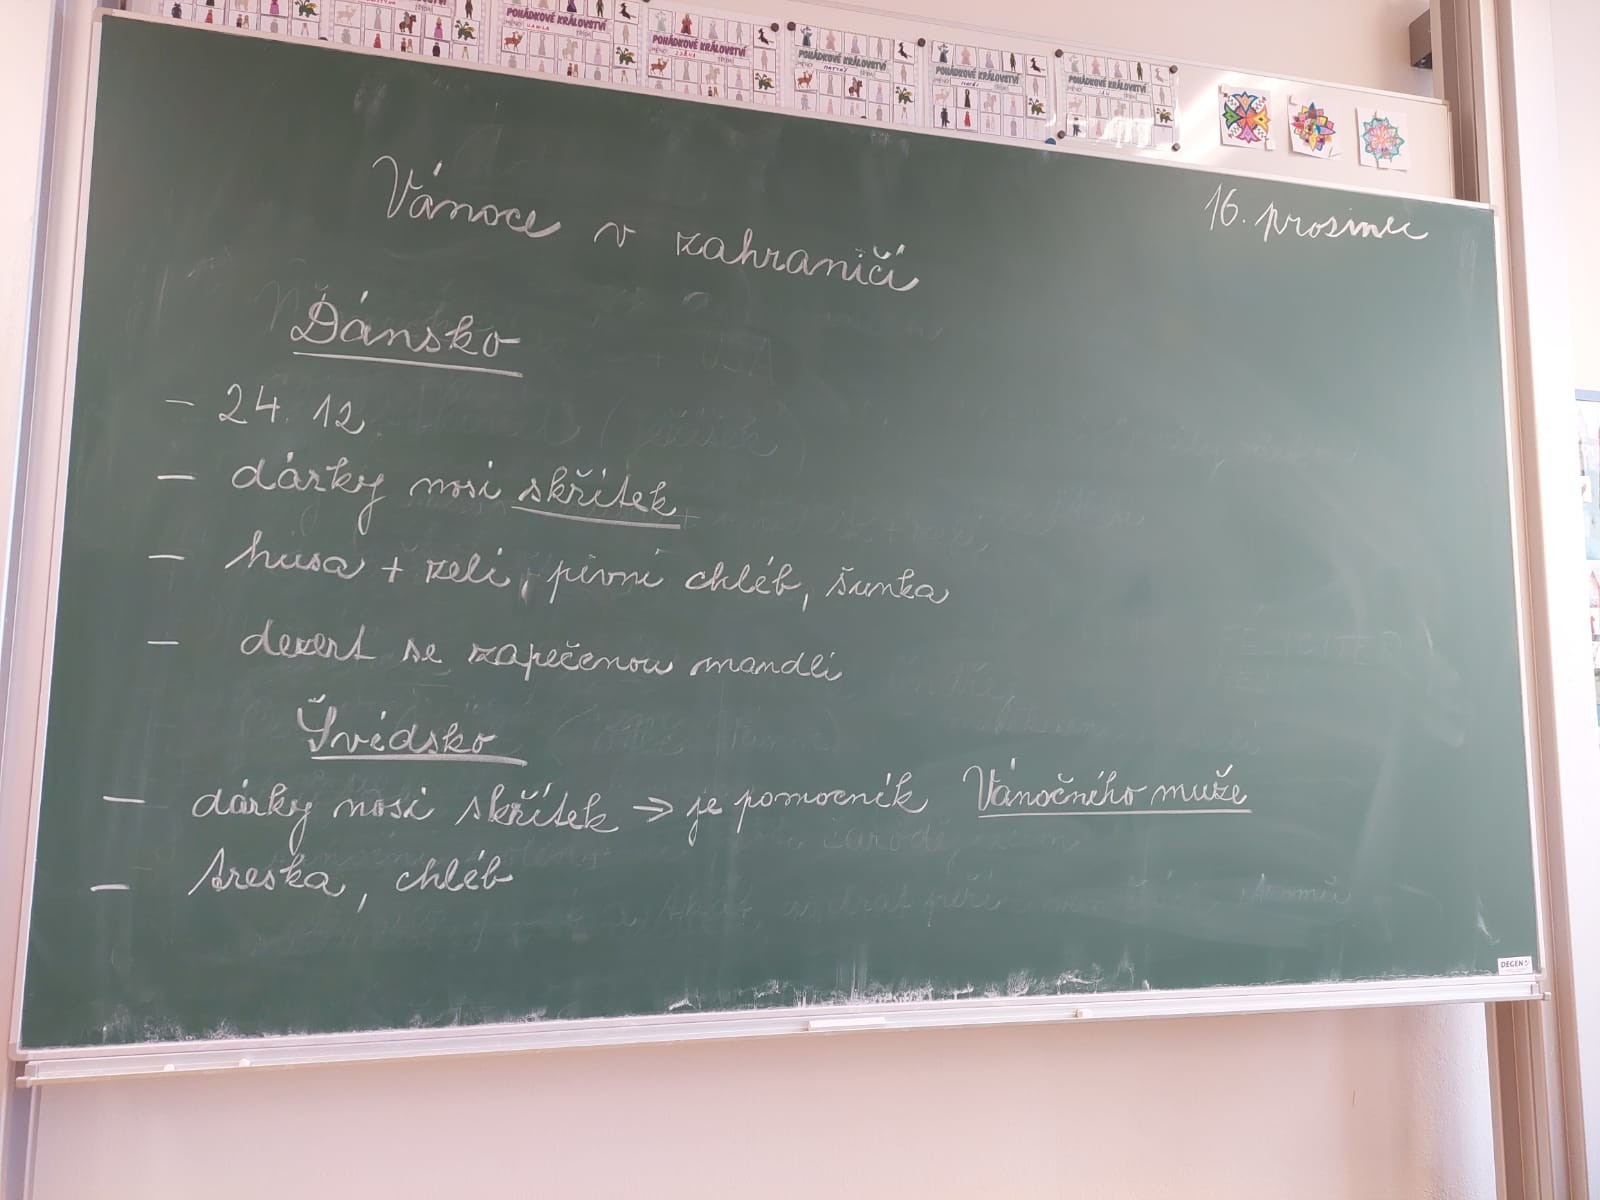 POHÁDKOVÉ KRÁLOVSTVÍ
POHÁDKOVÉ KRÁLOVSTVÍ
POHÁDKOVÉ KRÁLOVSTVÍ
POHÁDKOVÉ KRÁLOVSTVÍ
POHÁDKOVÉ KRÁLOVSTVÍ
16. prosinec
Vánoce v zahraničí
Dánsko
- 24. 12.
- dárky nosí skřítek
- husa + zelí, pivní chléb, šunka
- dezert se zapečenou mandlí
Švédsko
- dárky nosí skřítek => je pomocník Vánočního muže
- treska, chléb
DEGEN